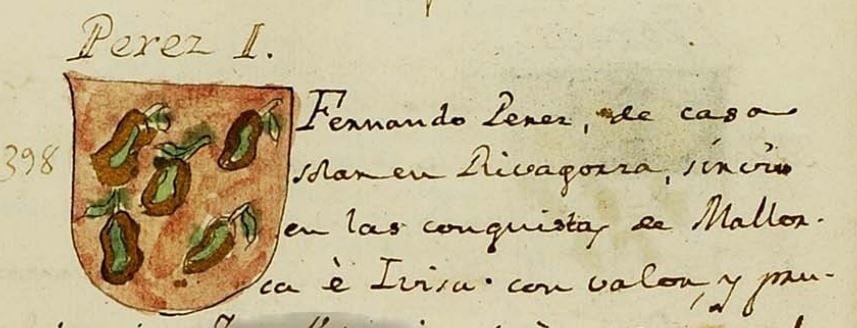 Perez I.
398
Fernando Perez, de casa
solar en Rivagorza, sirviò
en las conquistas de Mallor-
ca è Ivisa con valor, y pru-